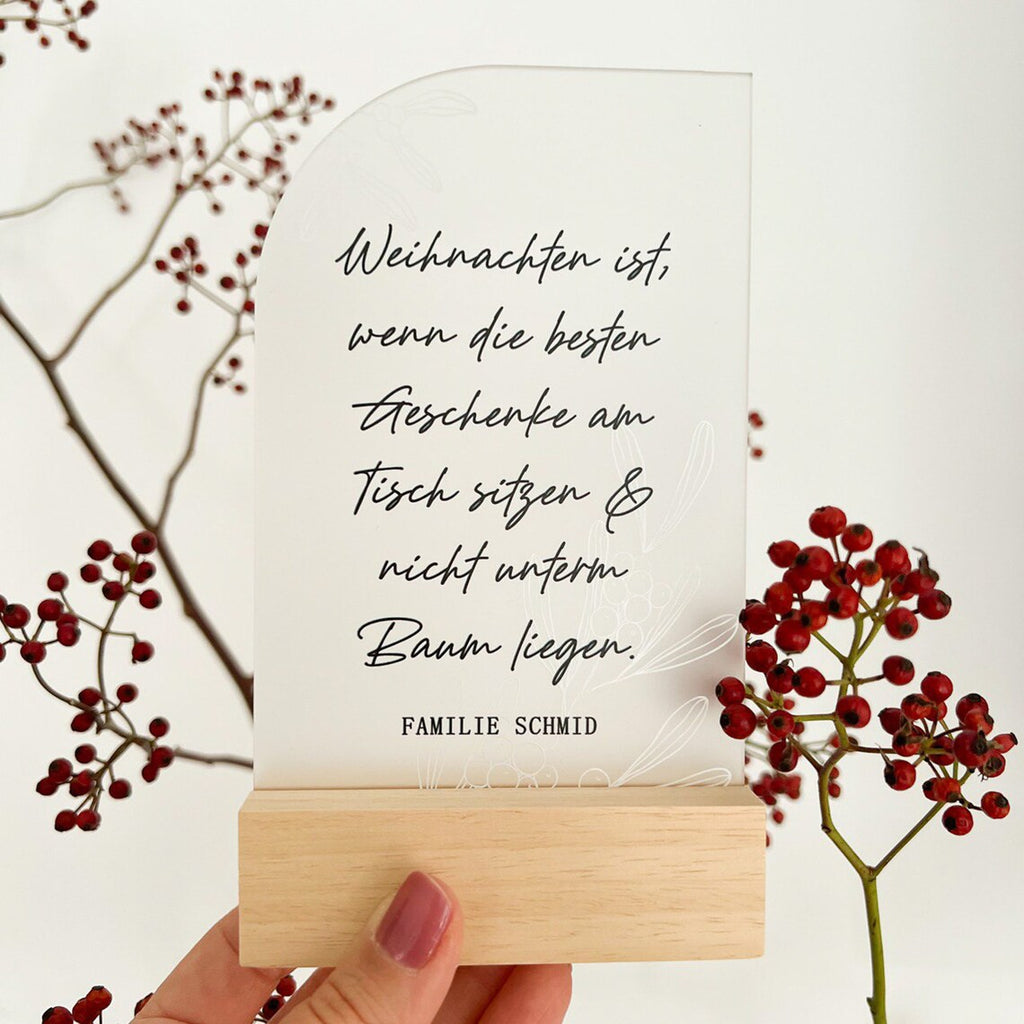 Weihnachten ist,
wenn die besten
Geschenke am
Tisch sitzen &
nicht unterm
Baum liegen.
FAMILIE SCHMID